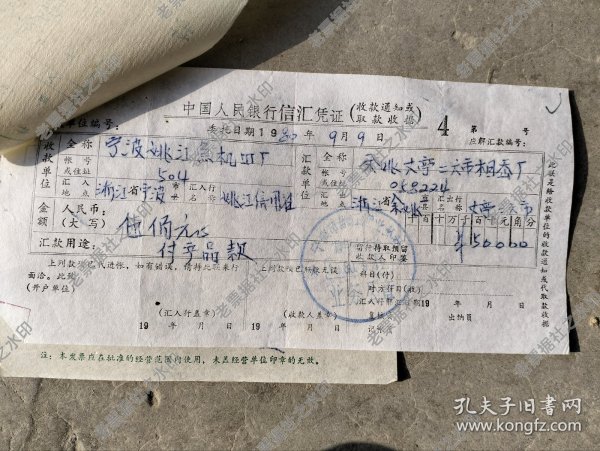 中国人民银行信汇凭证(收款通知或取款收据) 4 第 号
单位编号:
委托日期1980年9月9日
应解汇款编号:
收款单位
全称
宁波姚江
机口厂
帐号或住址
504
汇入地点
浙江省宁波
汇入行名称
姚江信用社
汇款单位
全称
帐号或住址
058224
汇出地点
浙江省余姚县
汇出行名称
金额
人民币:
(大写)
伍佰元
千百十万千百十元角分
¥50000
汇款用途:
付产品款
留行待取预留
收款人印签
上列款项已入进帐,如有错误,请持此联来行
面洽。此致
(开户单位)
上列款项已照数无误
科目(付)
对方科目(收)
汇入行解汇日期19 年 月 日
(汇入行盖章)
(收款人盖章)
复核
出纳员
19 年 月 日
19 年 月 日
记帐
此联是给收款单位的收款通知或代取款收据
注:本发票应在批准的经营范围内使用,未盖经营单位印章的无效。
老票据社之水印
孔夫子旧书网
www.kongfz.com